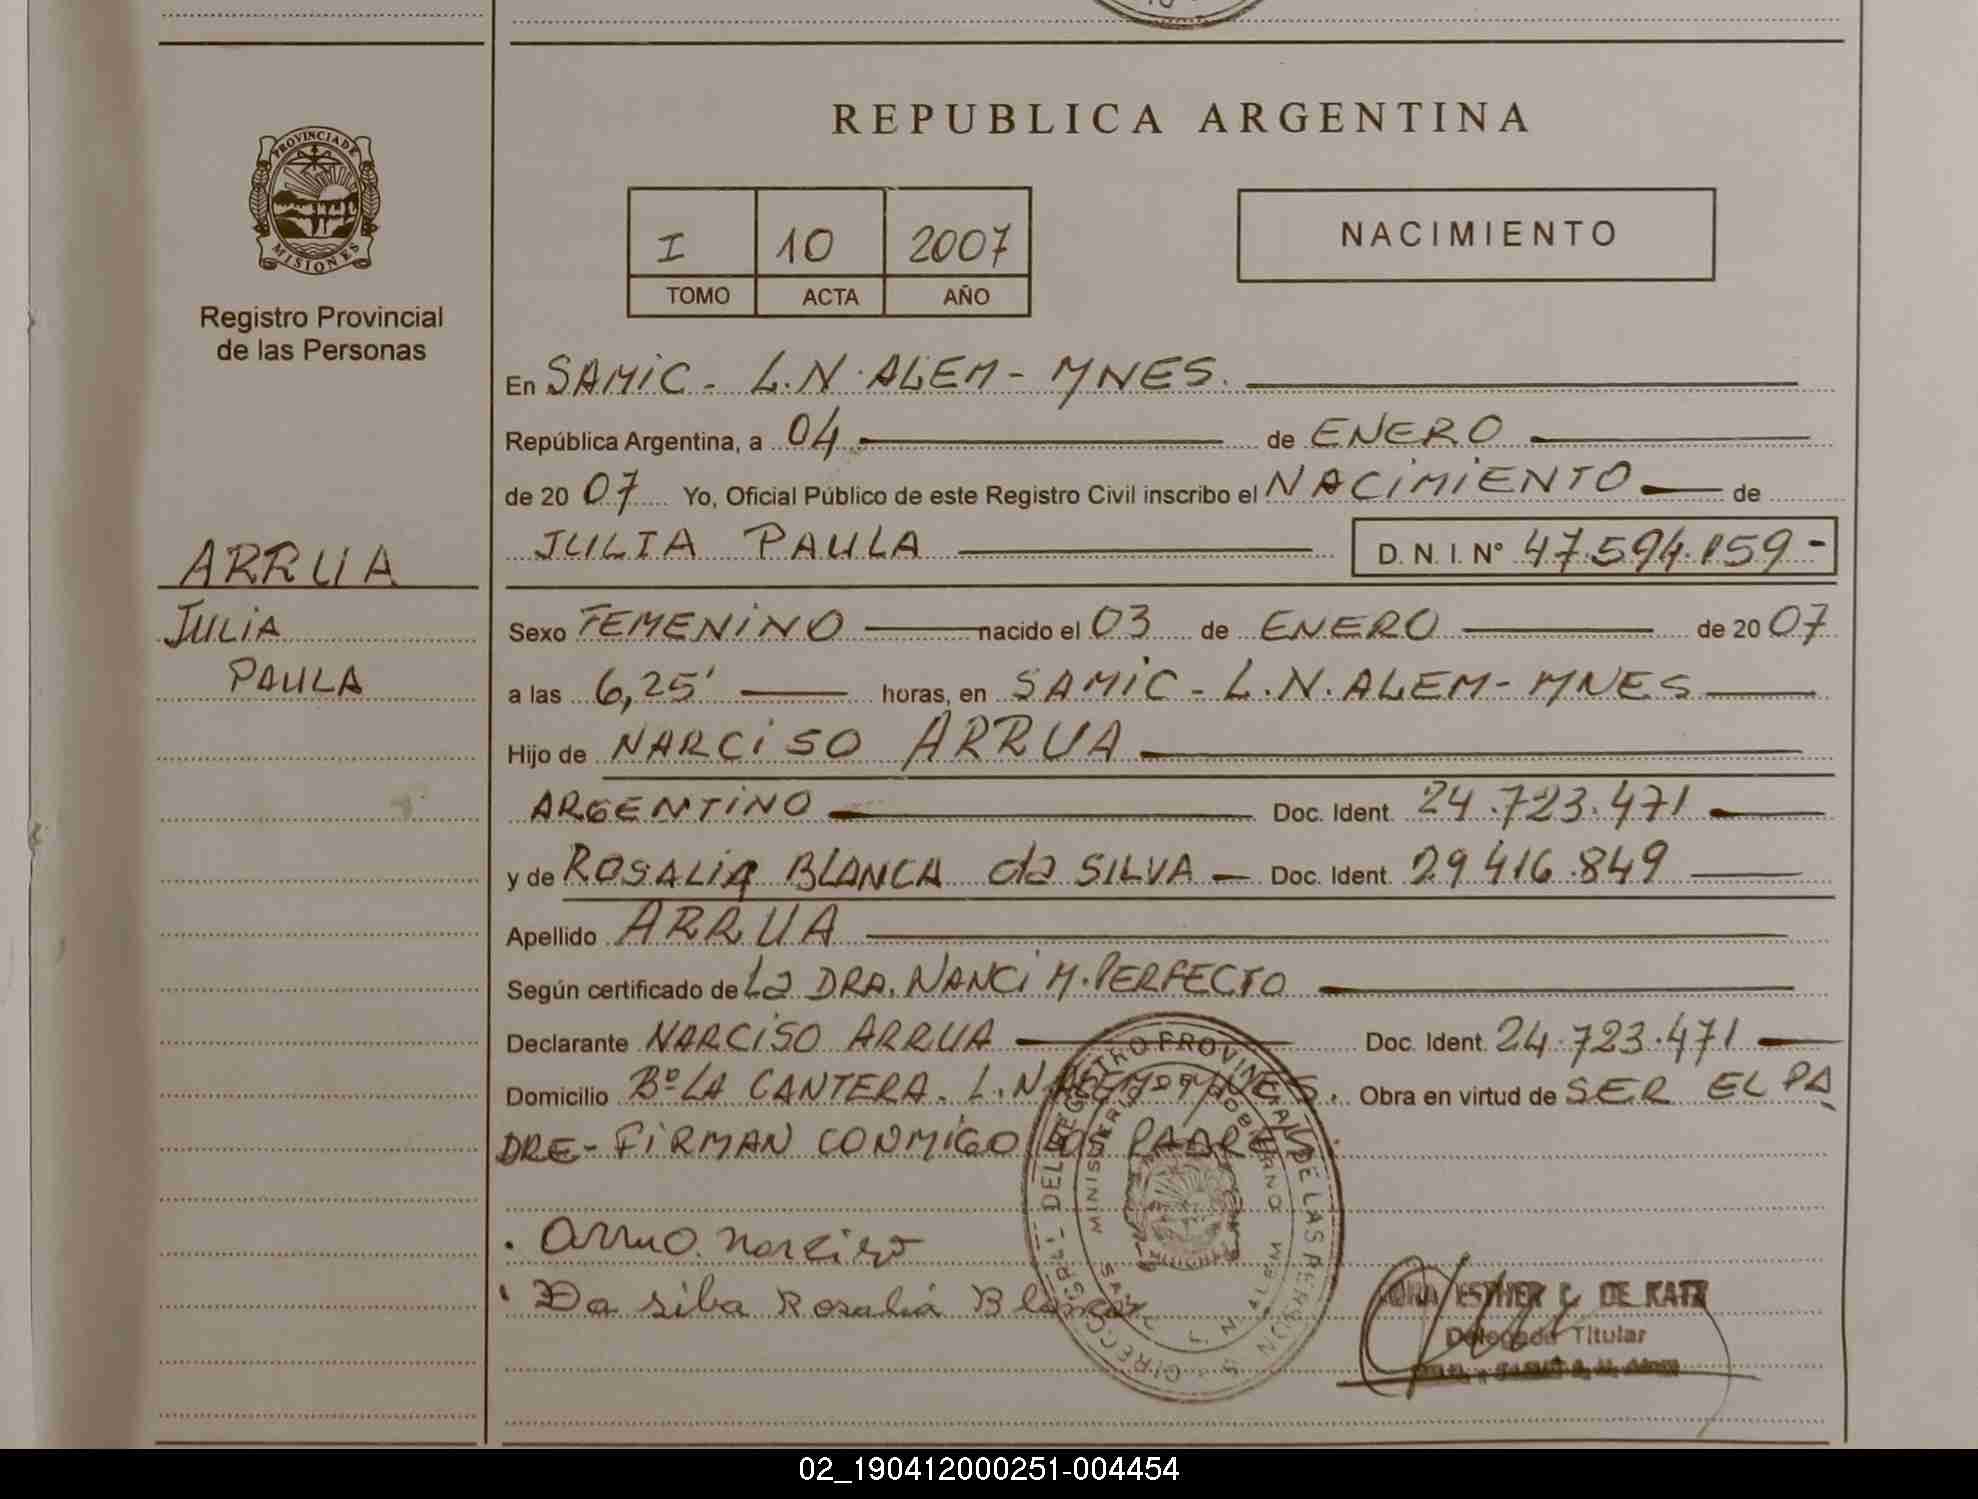 REPUBLICA ARGENTINA
PROVINCIA DE
MISIONES
Registro Provincial
de las Personas
I 10 2007
TOMO ACTA AÑO
NACIMIENTO
En SAMIC - L.N. ALEM - MNES.
República Argentina, a 04 de ENERO
de 20 07 Yo, Oficial Público de este Registro Civil inscribo el NACIMIENTO de
JULIA PAULA D. N. I. N° 47.594.159-
ARRUA
JULIA
PAULA
Sexo FEMENINO nacido el 03 de ENERO de 20 07
a las 6,25' horas, en SAMIC - L.N. ALEM - MNES
Hijo de NARCISO ARRUA
ARGENTINO Doc. Ident. 24.723.471
y de ROSALIA BLANCA da SILVA - Doc. Ident. 29 416.849
Apellido ARRUA
Según certificado de La DRA. NANCI M. PERFECTO
Declarante NARCISO ARRUA Doc. Ident. 24.723.471
Domicilio Bº LA CANTERA. L.N. ALEM - MNES. Obra en virtud de SER EL PA
DRE - FIRMAN CONMIGO LOS PADRES.
Arruo narciso
Da silba Rosalia Blanca
ESTHER C. DE KATZ
Delegada Titular
02_190412000251-004454